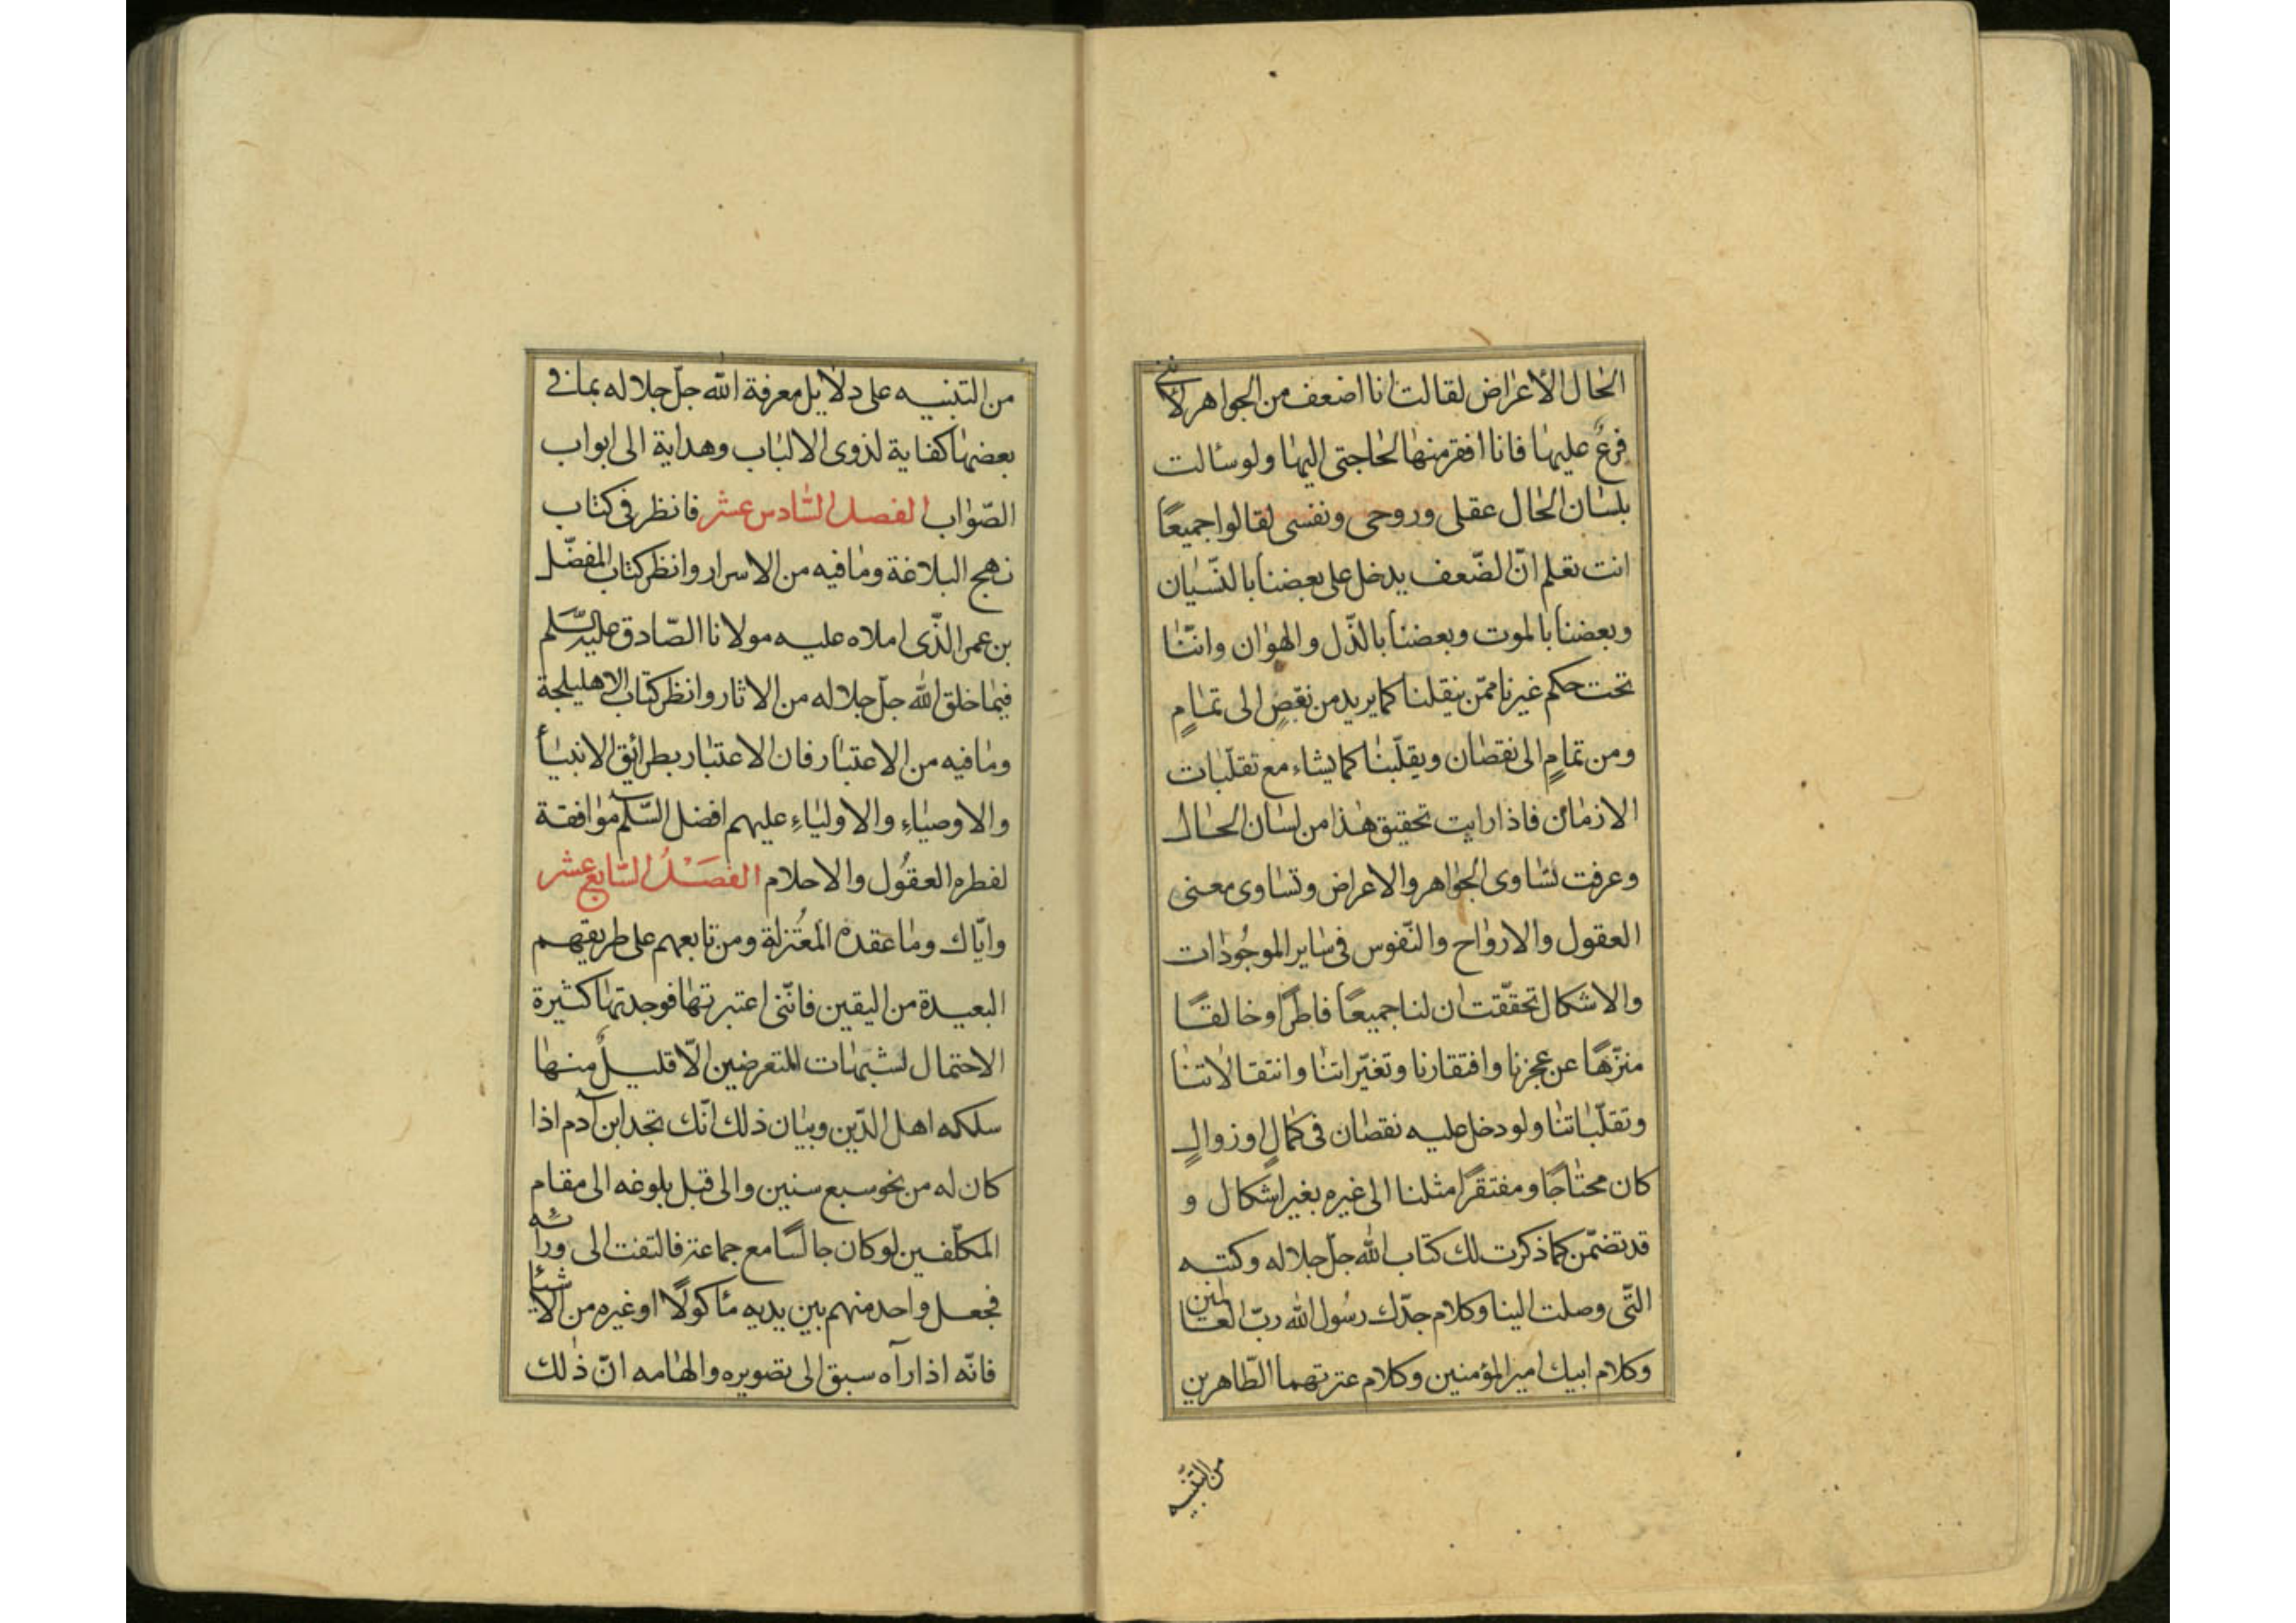 الحال الأعراض لقالت انا اضعف من الجواهر لأنني
فرعٌ عليها فانا افقر منها لحاجتى اليها ولو سئالت
بلسان الحال عقلى وروحى ونفسى لقالوا جميعًا
انت تعلم انّ الضّعف يدخل على بعضنا بالنّسيان
وبعضنا بالموت وبعضنا بالذّل والهوان وانّنا
تحت حكم غيرنا ممّن ينقلنا كما يريد من نقصٍ الى تمامٍ
ومن تمامٍ الى نقصان ويقلّبنا كما يشاء مع تقلّبات
الازمان فاذا رايت تحقيق هذا من لسان الحال
وعرفت تساوى الجواهر والاعراض وتساوى معنى
العقول والارواح والنّفوس فى ساير الموجُودات
والاشكال تحقّقت ان لنا جميعًا فاطرًا وخالقًا
منزّهًا عن عجزنا وافتقارنا وتغيّراتنا وانتقالاتنا
وتقلّباتنا ولو دخل عليه نقصان فى كمالٍ او زوالٍ
كان محتاجًا ومفتقرًا مثلنا الى غيره بغير اشكال و
قد تضمّن كما ذكرت لك كتاب الله جلّ جلاله وكتبه
التّى وصلت الينا وكلام جدّك رسُول الله ربّ العالمين
وكلام ابيك امير المؤمنين وكلام عترتهما الطّاهرين
من التّنبيه
من التّنبيه على دلايل معرفة الله جلّ جلاله بما فى
بعضها كفاية لذوى الالباب وهداية الى ابواب
الصّواب الفصل السّادس عشر فانظر فى كتاب
نهج البلاغة وما فيه من الاسرار وانظر كتاب المفضّل
بن عمر الذّى املاه عليه مولانا الصّادق عليه السّلم
فيما خلق الله جلّ جلاله من الاثار وانظر كتاب الاهليلجة
وما فيه من الاعتبار فان الاعتبار بطرائق الانبياء
والاوصياءِ والاولياءِ عليهم افضل السّلم موافقة
لفطره العقُول والاحلام الفصلُ السّابع عشر
وايّاك وما عقده المُعتزلة ومن تابعهم على طريقهم
البعيدة من اليقين فانّنى اعتبرتها فوجدتها كثيرة
الاحتمال لشبهات المتعرضين الّا قليلٌ منها
سلكه اهل الدّين وبيان ذلك انّك تجد ابن آدم اذا
كان له من نحو سبع سنين والى قبل بلوغه الى مقام
المكلّفين لو كان جالسًا مع جماعة فالتفت الى ورائه
فجعل واحد منهم بين يديه مأكولًا او غيره من الاشيئا
فانّه اذا رآه سبق الى تصويره والهامه انّ ذلك